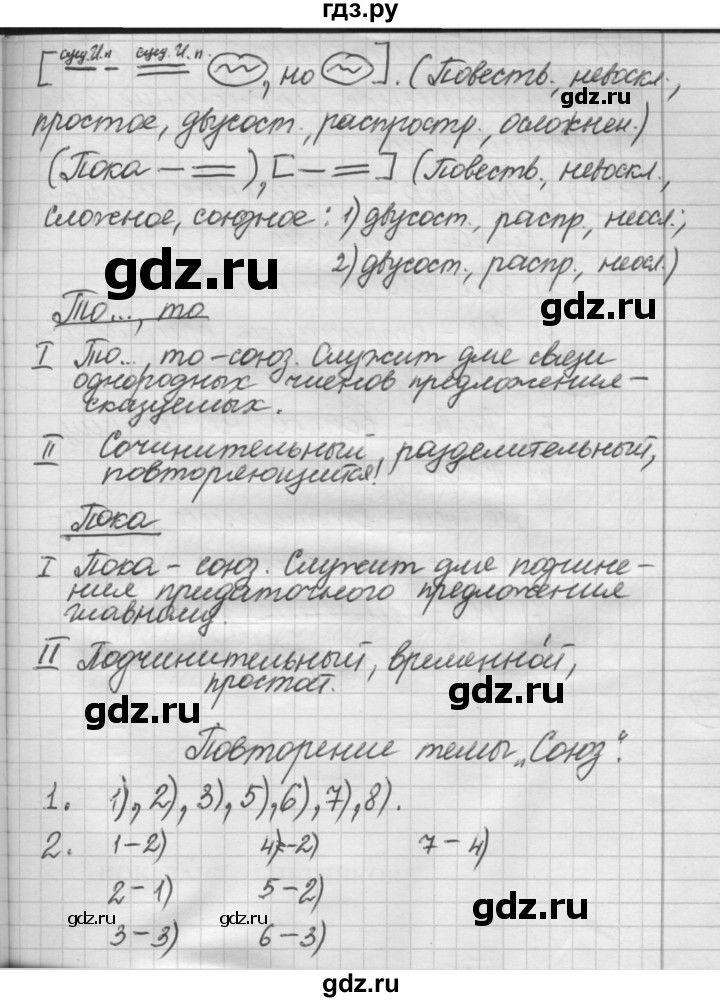 гдз.ру
[сущ. И.п сущ. И.п. , но ]. (Повесть., невоскл.,
gdz.ru
простое, двусост., распростр., осложнен.)
(Пока – =), [– =] (Повеств., невоскл.,
сложное, союзное: 1) двусост., распр., неосл.;
gdz.ru
2) двусост., распр., неосл.)
gdz.ru
То..., то
I То..., то – союз. Служит для связи
однородных членов предложения –
сказуемых.
II Сочинительный, разделительный,
повторяющийся!
gdz.ru
Пока
I Пока – союз. Служит для подчине-
ния придаточного предложения
главному.
II Подчинительный, временно́й,
простой.
gdz.ru
gdz.ru
Повторение темы „Союз".
1. 1), 2), 3), 5), 6), 7), 8).
2. 1 – 2) 4 – 2) 7 – 4)
2 – 1) 5 – 2)
gdz.ru gdz.ru
3 – 3) 6 – 3)
gdz.ru